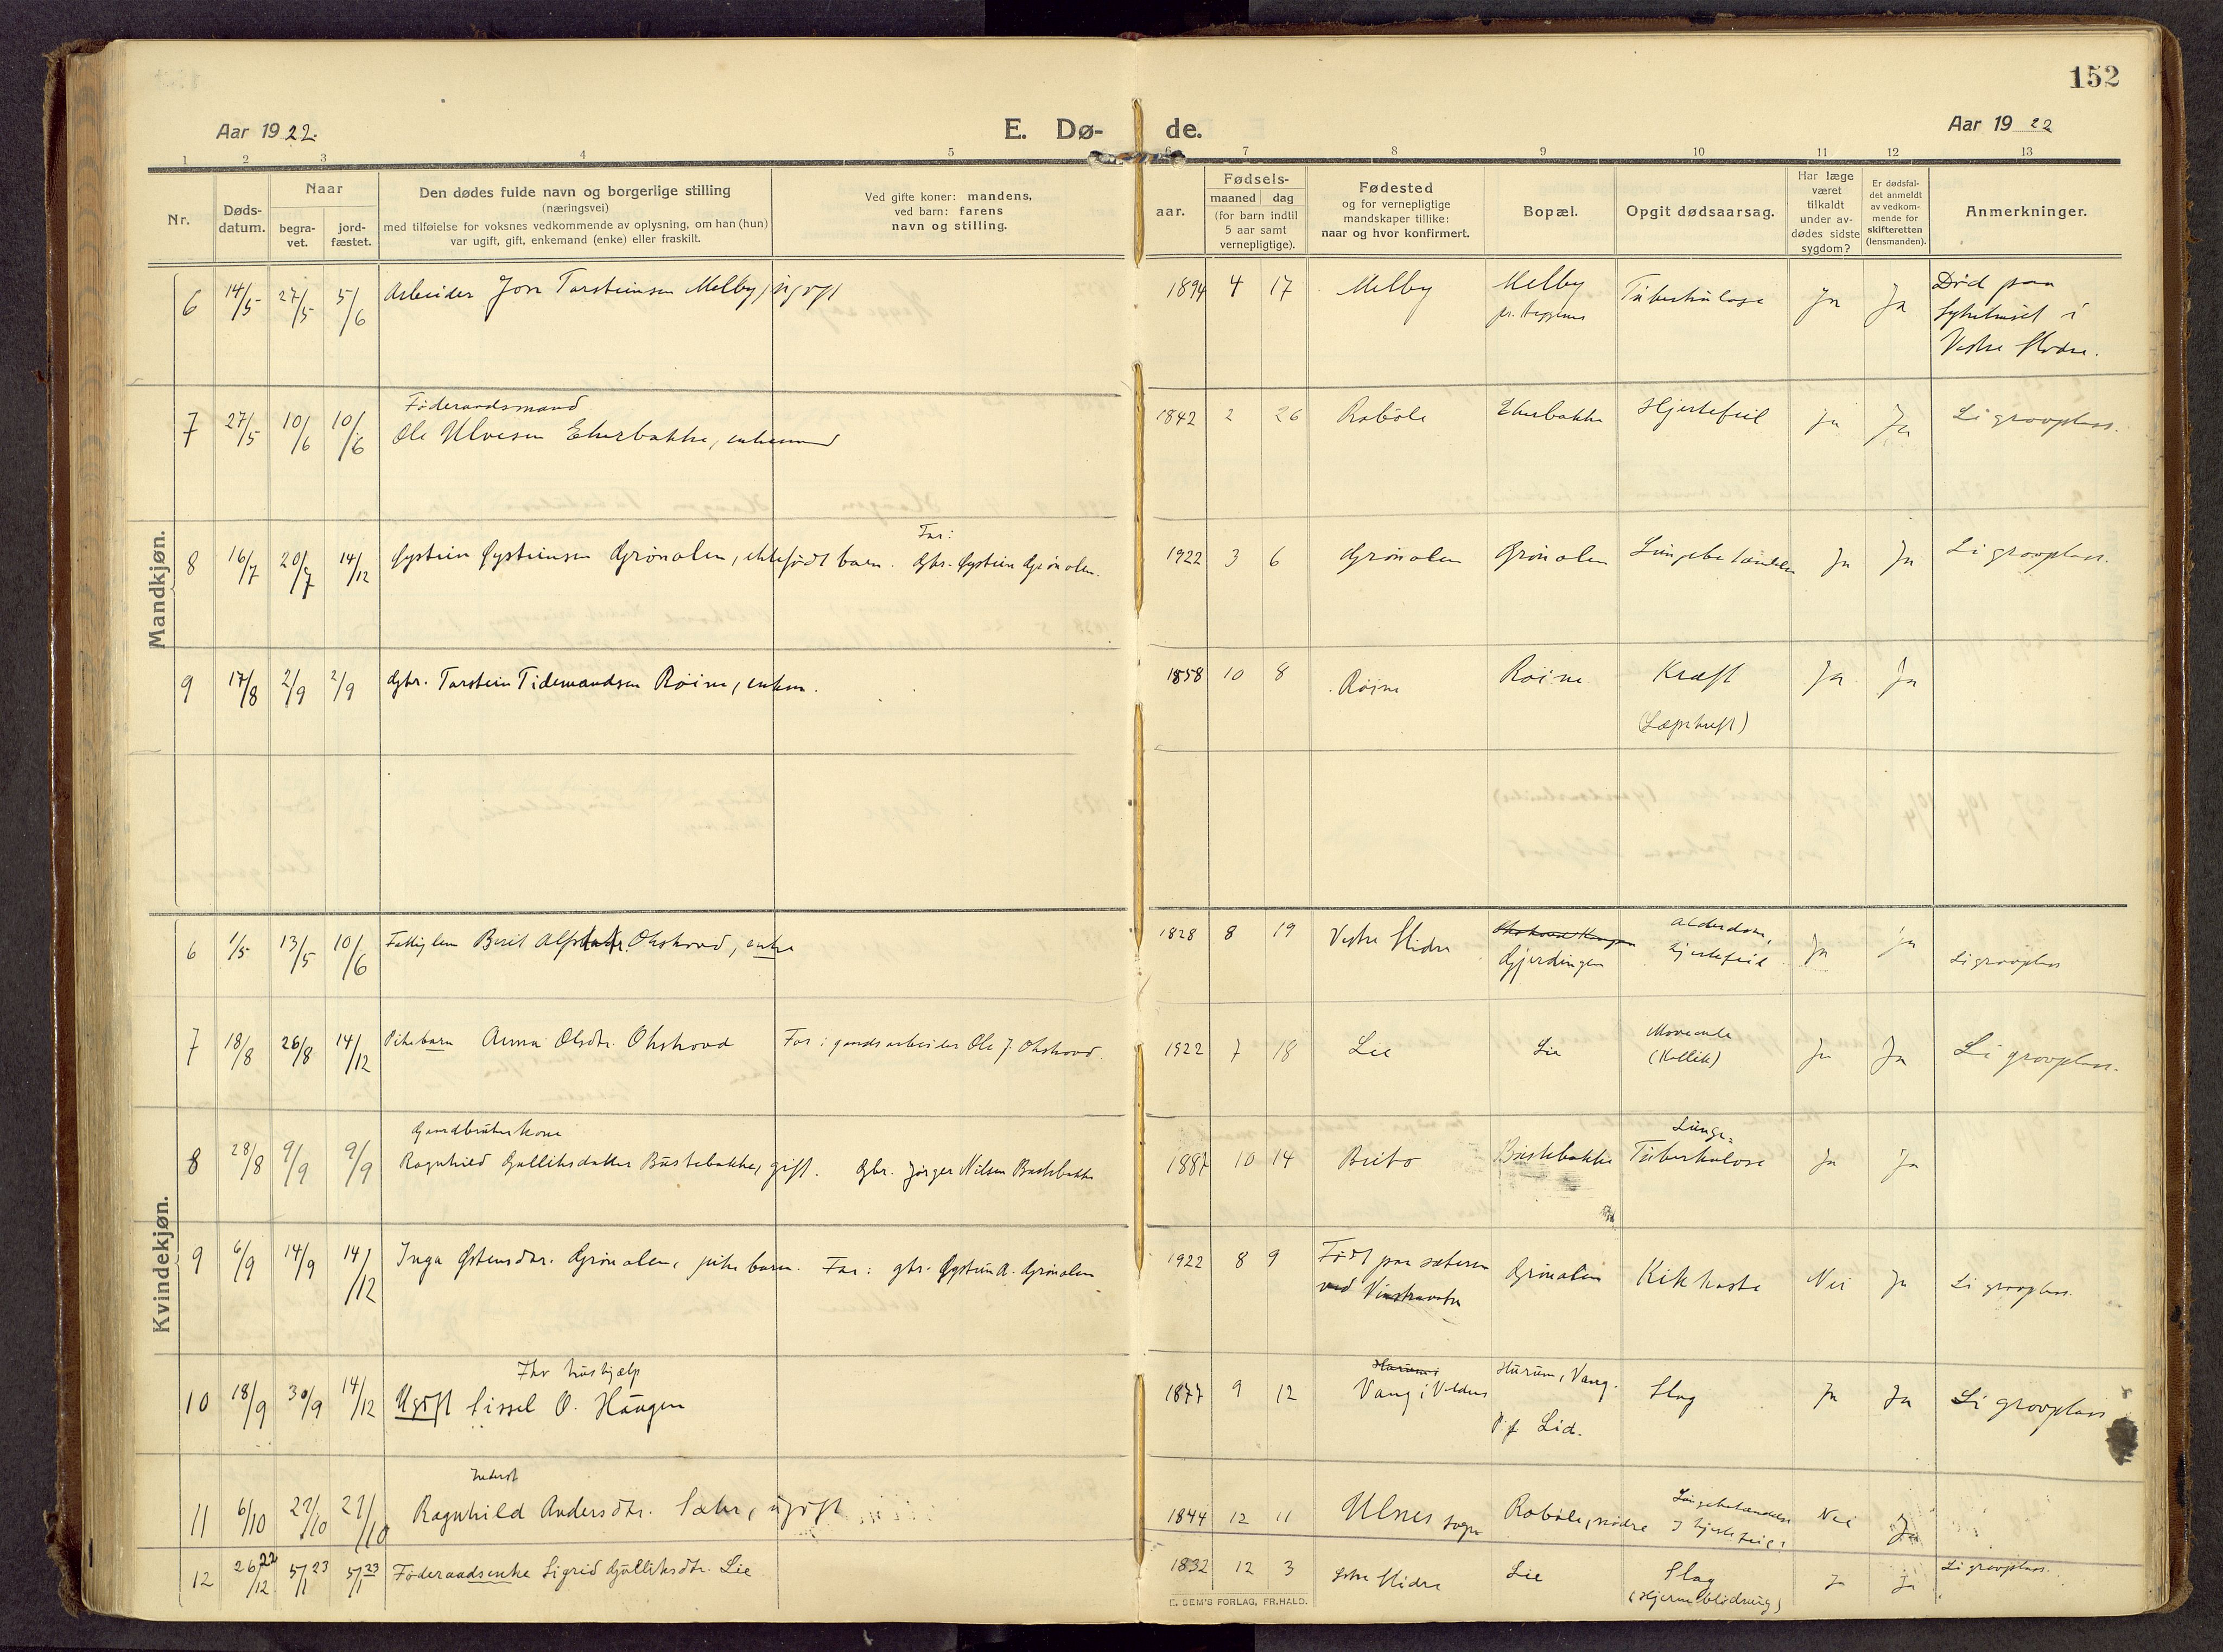 152
Aar 1922.
E. Dø-
de.
Aar 1922
1 2 3 4 5 6 7 8 9 10 11 12 13
Nr.
Døds-
datum.
Naar
begra-
vet.
jord-
fæstet.
Den dødes fulde navn og borgerlige stilling
(næringsvei)
med tilføielse for voksnes vedkommende av oplysning, om han (hun)
var ugift, gift, enkemand (enke) eller fraskilt.
Ved gifte koner: mandens,
ved barn: farens
navn og stilling.
aar.
Fødsels-
maaned dag
(for barn indtil
5 aar samt
vernepligtige).
Fødested
og for vernepligtige
mandskaper tillike:
naar og hvor konfirmert.
Bopæl.
Opgit dødsaarsag.
Har læge
været
tilkaldt
under av-
dødes sidste
sygdom?
Er dødsfal-
det anmeldt
av vedkom-
mende for
skifteretten
(lensmanden).
Anmerkninger.
Mandkjøn.
6 14/5 27/5 5/6 Arbeider Jon Torsteinsen Melby, ugift 1894 4 17 Melby Melby Tuberkulose Ja Ja Død paa
sykehuset i
Vestre Slidre.
Føderaadsmand
7 27/5 10/6 10/6 Ole Ulvesen Ekerbakke, enkemand 1842 2 26 Robøle Ekerbakke Hjertefeil Ja Ja Li gravplass.
Far:
8 16/7 20/7 14/12 Øystein Øysteinsen Grønolen, ektefødt barn. Gbr. Øystein Grønolen. 1922 3 6 Grønolen Grønolen Lungebetændelse Ja Ja Li gravplass.
9 17/8 2/9 2/9 Gbr. Torstein Tidemandsen Røine, enkem. 1858 10 8 Røine Røine Kræft Ja Ja
(Læpekræft)
Kvindekjøn.
6 1/5 13/5 10/6 Fattiglem Berit Alfsdatr. Okshovd, enke 1828 8 19 Vestre Slidre Gjerdingen Alderdom,
hjertefeil Ja Ja Li gravplass
7 18/8 26/8 14/12 Pikebarn Anna Olsdtr. Okshovd Far: gaardsarbeider Ole J. Okshovd. 1922 7 18 Lie Lie Mavesyke
(Kollik) Ja Ja Li gravplass.
Gaardbrukerkone
8 28/8 9/9 9/9 Ragnhild Gulliksdatter Bustebakke, gift. Gbr. Jørger Nilsen Bustebakke 1887 10 14 Beito Bustebakke Lunge=
Tuberkulose Ja Ja
9 6/9 14/9 14/12 Inga Østensdtr. Grønolen, pikebarn. Far: gbr. Øystein A. Grønolen 1922 8 9 Født paa sæteren
ved Vinstravatn Grønolen Kikhoste Nei Ja Li gravplass.
Fhv hushjælp
10 18/9 30/9 14/12 Ugift Sissel O. Haugen 1877 9 12 Hurum i
Vang i Valdres Hurum, Vang.
P.t. Lid. Slag Ja Ja Li gravplass
Inderst
11 6/10 27/10 27/10 Ragnhild Andersdtr. Sæhr, ugift 1844 12 11 Ulnes sogn Robøle, nørdre Lungebetændelse
og hjertefeil Nei Ja
12 26/12 22 5/1 23 5/1 23 Føderaadsenke Sigrid Gulliksdtr. Lie 1832 12 3 Østre Slidre Lie Slag
(Hjerneblødning) Ja Ja Li gravplass.
E. SEM'S FORLAG, FR.HALD.